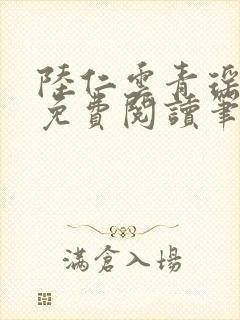 陸仁雲青瑤
免費閱讀筆
滿倉入場